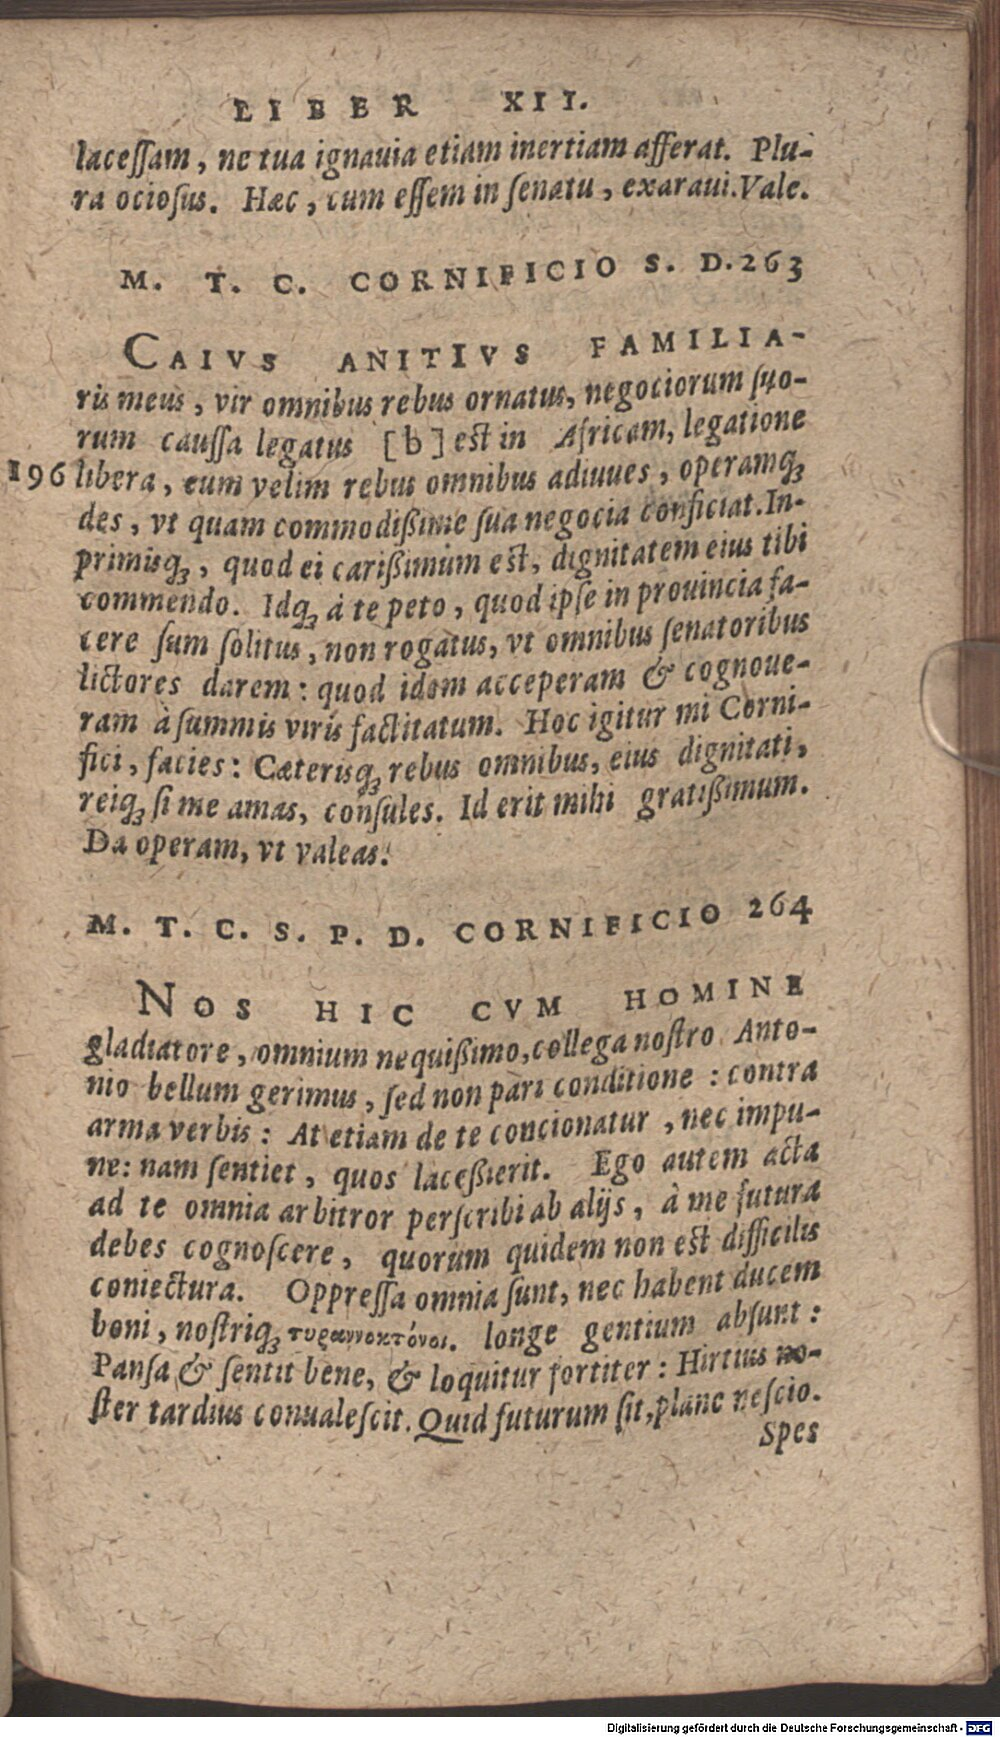 LIBER XII.
lacessam, ne tua ignauia etiam inertiam afferat. Plu-
ra ociosus. Hæc, cum essem in senatu, exaraui. Vale.
M. T. C. CORNIFICIO S. D. 263
CAIVS ANITIVS FAMILIA-
ris meus, vir omnibus rebus ornatus, negociorum suo-
rum caussa legatus [b] est in Africam, legatione
196 libera, eum velim rebus omnibus adiuues, operamq́ꝫ
des, vt quam commodißime sua negocia conficiat. In-
primisq́ꝫ, quod ei carißimum est, dignitatem eius tibi
commendo. Idq́ꝫ à te peto, quod ipse in prouincia fa-
cere sum solitus, non rogatus, vt omnibus senatoribus
lictores darem: quod idem acceperam & cognoue-
ram à summis viris factitatum. Hoc igitur mi Corni-
fici, facies: Cæterisq́ꝫ rebus omnibus, eius dignitati,
reiq́ꝫ si me amas, consules. Id erit mihi gratißimum.
Da operam, vt valeas.
M. T. C. S. P. D. CORNIFICIO 264
NOS HIC CVM HOMINE
gladiatore, omnium nequißimo, collega nostro Anto-
nio bellum gerimus, sed non pari conditione: contra
arma verbis: At etiam de te concionatur, nec impu-
ne: nam sentiet, quos laceßierit. Ego autem acta
ad te omnia arbitror perscribi ab alijs, à me futura
debes cognoscere, quorum quidem non est difficilis
coniectura. Oppressa omnia sunt, nec habent ducem
boni, nostriq́ꝫ τυραννοκτόνοι. longe gentium absunt:
Pansa & sentit bene, & loquitur fortiter: Hirtius no-
ster tardius conualescit. Quid futurum sit, plane nescio.
Spes
Digitalisierung gefördert durch die Deutsche Forschungsgemeinschaft - DFG